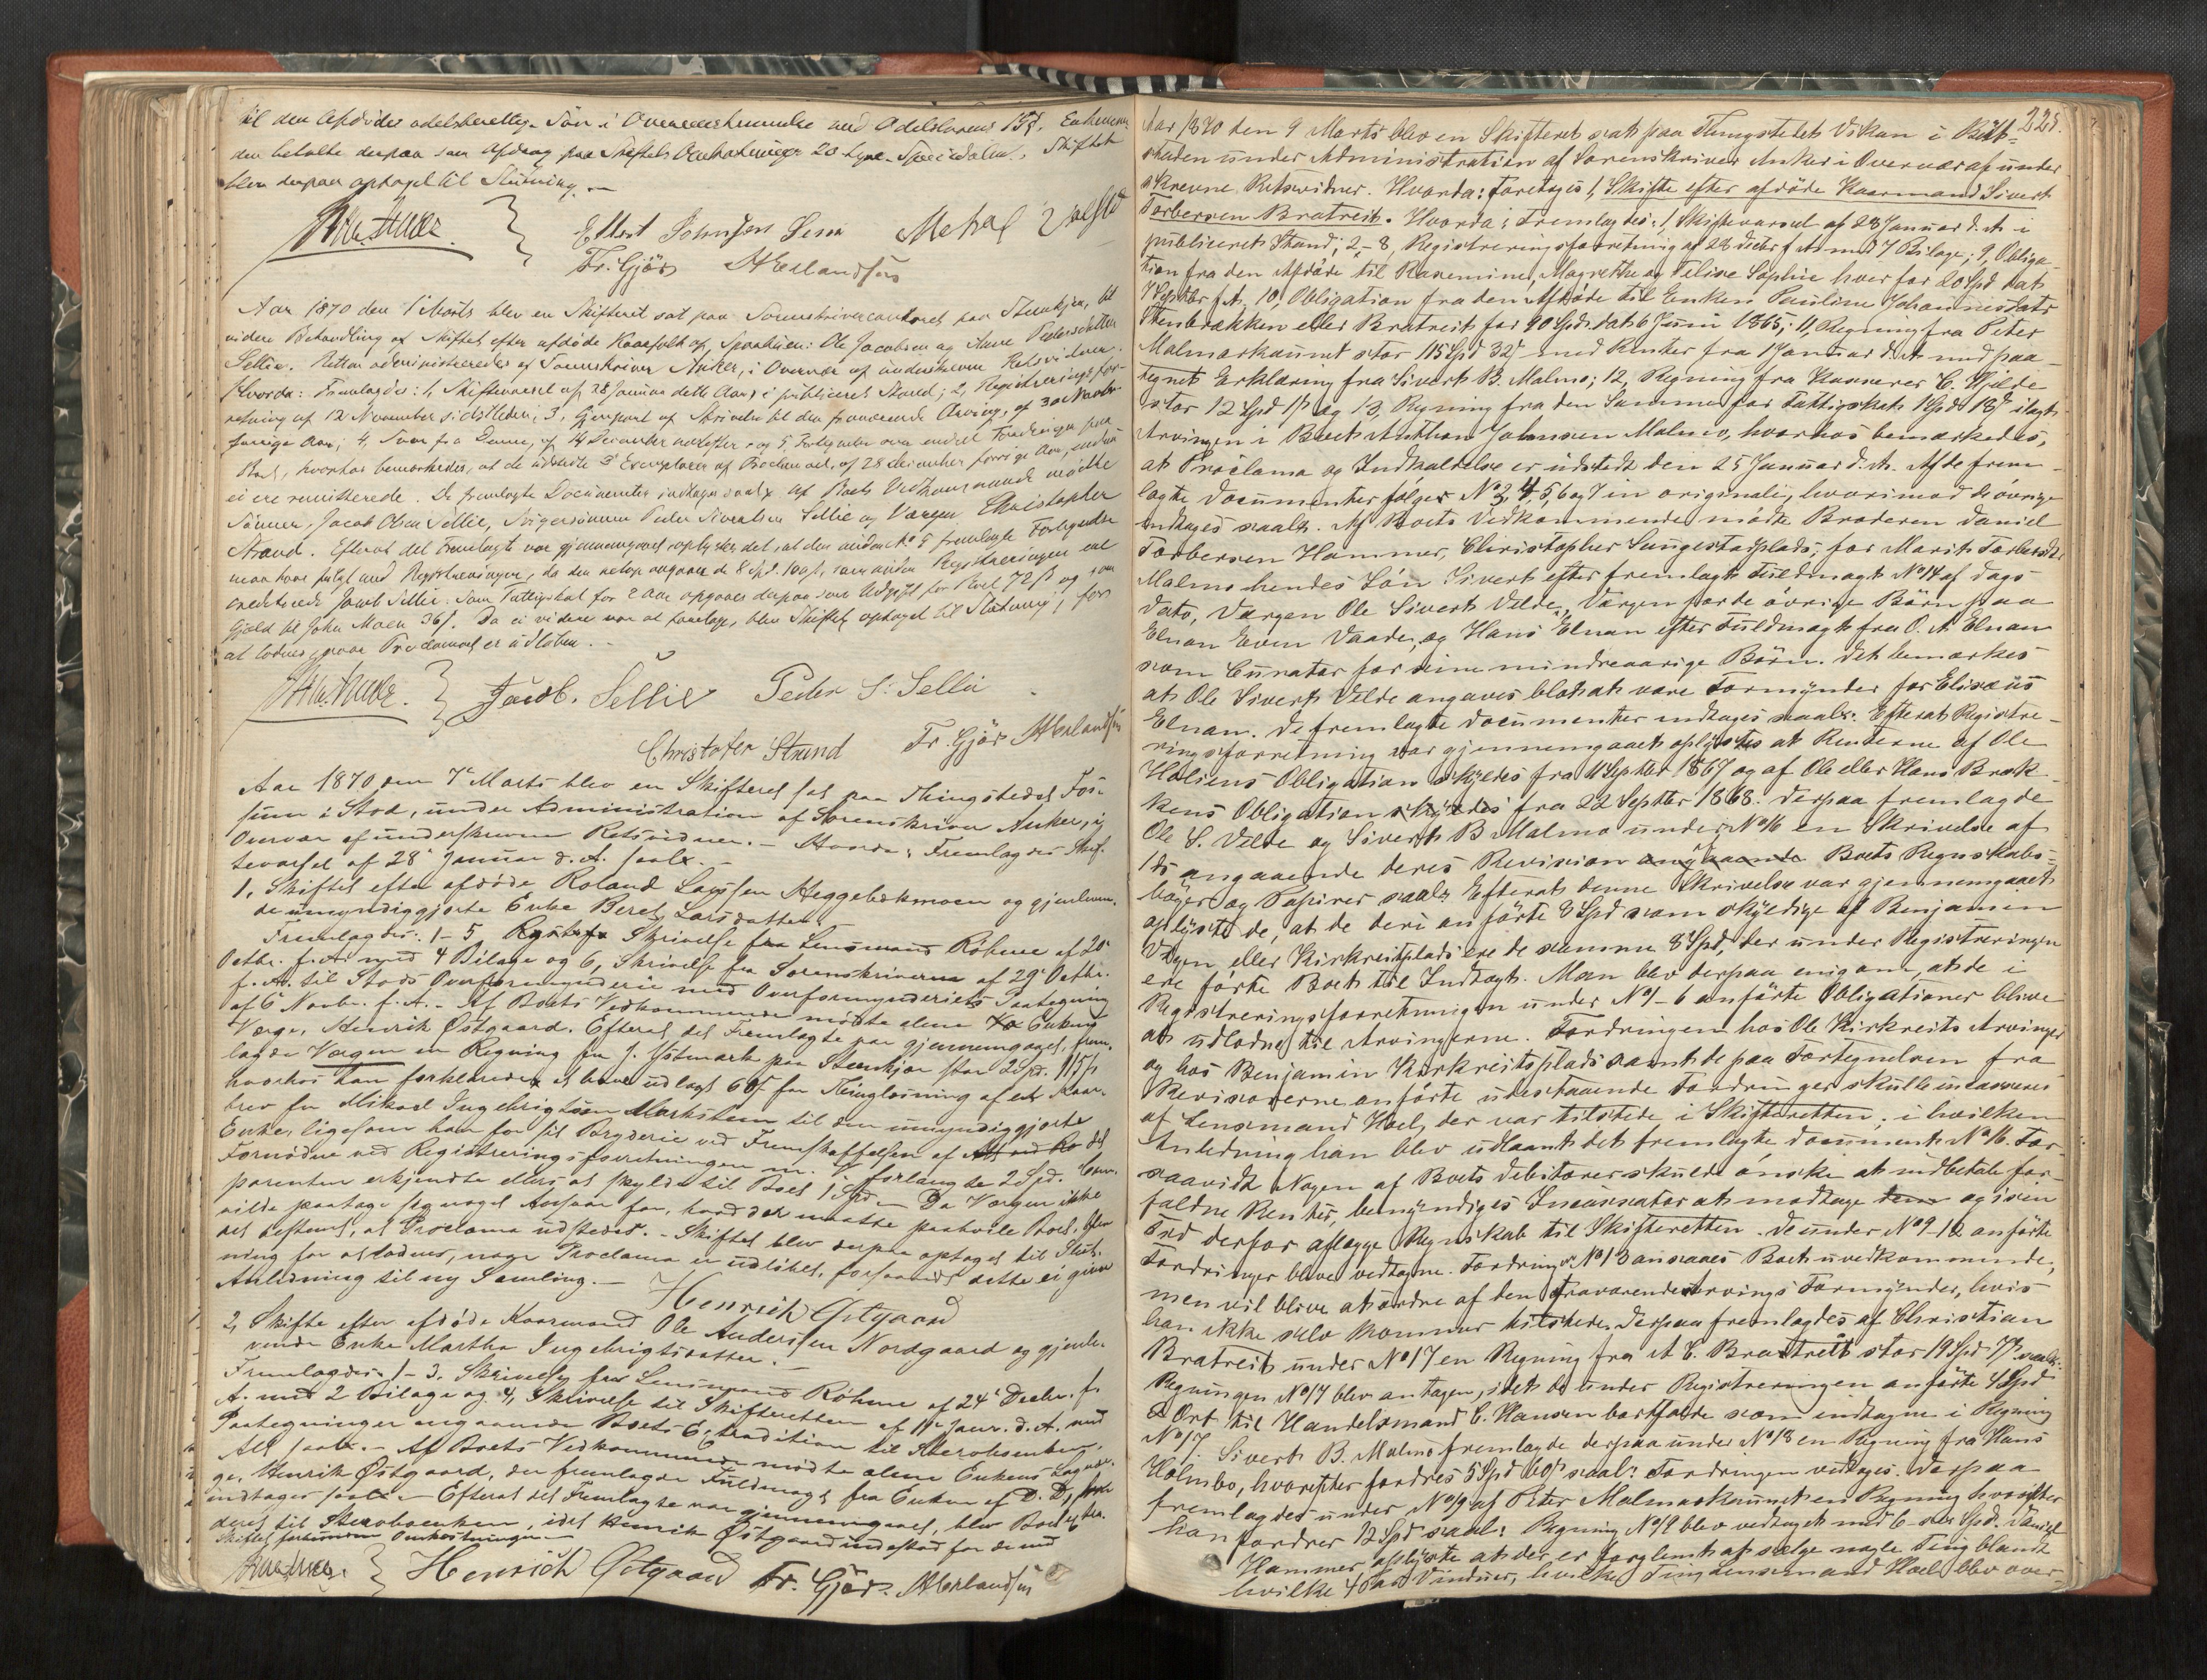 til den Afdødes odelsberettig. Søn i Overeensstemmelse med Odelslovens 15§. Enkemann-
den betalte derpaa som Afdrag paa Skiftets Omkostninger 20 tyve Speciedaler. Skiftet
blev derpaa optaget til Slutning.
Ellert Johnsen Sem
Fr. Gjør HErlandsen
Aar 1870 den 1 Marts blev en Skifteret sat paa Sorenskrivercontoret paa Steenkjær, til
videre Behandling af Skiftet efter afdøde Kaarfolk af Sparbuen: Ole Jacobsen og Anne Pedersdatter
Sellie. Retten administreredes af Sorenskriver Anker, i Overvær af underskrevne Retsvidner.
Hvorda: Fremlagdes: 1, Skiftevarsel af 28 Januar dette Aar i publiceret Stand; 2, Registreringsfor-
retning af 12 November sidstleden, 3, Gjenpart af Skrivelse til den fraværende Arving, af 30 Novbr
forrige Aar; 4, Svar fra Denne, af 14 December næstefter og 5 Fortegnelse over endeel Fordringer paa
Boet, hvorhos bemærkedes, at de udstedte 3 Exemplarer af Proclama, af 28 December forrige Aar, endnu
ei ere remitterede. De fremlagte Documenter indtages saal. Af Boets Vedkommende mødte
Sønnen, Jacob Olsen Sellie, Svigersønnen Peder Sivertsen Sellie og Værgen Christopher
Strand. Efterat det Fremlagte var gjennemgaaet, oplystes det, at den under No 5 fremlagte Fortegnelse
maa have fulgt med Registreringen, da den netop angaaer de 8 Spd. 100 ß, som under Registreringen ere
crediterede Jacob Sellie. Som Fattigskat for 2 Aar opgaves derpaa som Udgift for Boet 72 ß og som
Gjæld til John Moen 36 ß. Da ei videre var at foretage, blev Skiftet optaget til Slutning, for
at loddes, naar Proclamaet er udløben.
Jacob. Sellie Peder S. Sellie
Christofer Strand Fr. Gjør HErlandsen
Aar 1870 den 7de Marts blev en Skifteret sat paa Thingstedet Fos-
sum i Stod, under Administration af Sorenskriver Anker, i
Overvær af underskrevne Retsvidner. - Hvorda: Fremlagdes Skif-
tevarsel af 28de Januar d. A. saal. -
1, Skiftet efter afdøde Roland Larssen Heggebækmoen og gjenleven-
de umyndiggjorte Enke Beret Larsdatter. -
Fremlagdes: 1-5 Skrivelse fra Lensmand Røhme af 20de
Octbr. f. A. med 4 Bilage og 6, Skrivelse fra Sorenskriveren af 29de Octbr.
f. A. til Stods Overformynderie med Overformynderiets Paategning
af 6 Novbr. f. A. - Af Boets Vedkommende mødte alene Enkens
Værge, Henrik Østgaard. Efterat det Fremlagte var gjennemgaaet, frem-
lagde Værgen en Regning fra J. Østmark paa Steenkjær stor 2 Spd. 115 ß
hvorhos han forklarede at have udlagt 60 ß for Thinglæsning af et Kaar-
brev fra Mikael Ingebrigtsen Markstem til den umyndiggjorte
Enke, ligesom han for sit Bryderie ved Fremskaffelsen af det
Fornødne ved Registreringsforretningen m. V. forlangte 2 Spd. Com-
parenten erkjendte ellers at skylde til Boet 1 Spd. - Da Værgen ikke
vilde paatage sig noget Ansvar for, hvad der maatte paahvile Boet, blev
det bestemt, at Proclama udstedes. - Skiftet blev derpaa optaget til Slut-
ning for at loddes, naar Proclama er udløbet, forsaavidt dette ei giver
Anledning til ny Samling. -
Henrich Østgaard
2, Skifte efter afdøde Kaarmand Ole Andersen Nordgaard og gjenle-
vende Enke Martha Ingebrigtsdatter. -
Fremlagdes 1-3, Skrivelse fra Lensmand Røhme af 24de Decbr. f.
A. med 2 Bilage og 4, Skrivelse til Skifteretten af 11te Janr. d. A. med
Paategninger angaaende Boets Extradition til
Alt saal. - Af Boets Vedkommende mødte alene Enkens Laugvær-
ge, Henrik Østgaard, der fremlagde Fuldmagt fra Enken af D. D., som
indtages saal. - Efterat det Fremlagte var gjennemgaaet, blev Boet extra-
deret til Sterboenken, idet Henrik Østgaard indestod for de med
Skiftet forbundne Omkostninger. -
Henrich Østgaard Fr. Gjør. HErlandsen
225.
Aar 1870 den 9 Marts blev en Skifteret sat paa Thingstedet Vikan i Beit-
staden under Administration af Sorenskriver Anker i Overvær af under
skrevne Retsvidner. Hvorda: Foretoges 1, Skifte efter afdøde Kaarmand Sivert
Torbersen Bratreit. Hvorda: Fremlagdes: 1, Skiftevarsel af 28 Januar d. A. i
publiceret Stand; 2-8, Registreringsforretning af 28 Decbr f. A. med 7 Bilage; 9, Obliga-
tion fra den Afdøde til Karemine, Magrethe og Feline Sophie hver for 20 Spd dat.
7 Septbr f. A. 10, Obligation fra den Afdøde til Enken Pauline Johannesdatr
Stenbrækken eller Bratreit for 90 Spd. dat. 6 Juni 1865; 11, Regning fra Peter
Malmoskaunet stor 115 Spd 32 ß med Renter fra 1 Januar d. A. med paa-
tegnet Erklæring fra Sivert B. Malmo; 12, Regning fra Kasserer C. Hjelde
stor 12 Spd 1 ß og 13, Regning fra den Samme for Fattigskat 1 Spd 18 ß ilagt
Arvingen i Boet Anthon Johnsen Malmo, hvorhos bemærkedes,
at Proclama og Indkaldelse er udstedt den 25 Januar d. A. Af de frem-
lagte Documenter følger No 3, 4, 5, 6 og 7 in originali, hvorimod de øvrige
indtages saal. Af Boets Vedkommende mødte Broderen Daniel
Torbersen Hammer, Christopher Sungestadplads, for Marit Torbersdr
Malmo hendes Søn Sivert efter fremlagt Fuldmagt No 14 af Dags
Dato, Værgen Ole Sivert Velde, Værgen for de øvrige Børn paa
Elnan Even Vaade, og Hans Elnan efter Fuldmagt fra O. A. Elnan
som Curator for sine mindreaarige Børn. Det bemærkes
at Ole Sivert Velde angaves blot at være Formynder for Elisæus
Elnan. De fremlagte Documenter indtages saal. Efterat Registre-
ringsforretning var gjennemgaaet oplystes at Renterne af Ole
Holiens Obligation skyldes fra 11 Septbr 1867 og af Ole eller Hans Bræk-
kens Obligation skyldes fra 22 Septbr 1868. Derpaa fremlagde
Ole S. Velde og Sivert B. Malmo under No 16 en Skrivelse af
1 ds angaaende deres Revision angaaende Boets Regnskabs-
bøger og Papirer saal. Efterat denne Skrivelse var gjennemgaaet
oplyste de, at de deri anførte 8 Spd som skyldige af Benjamin
eller Kirkreitplads ere de samme 8 Spd, der under Registreringen
ere førte Boet til Indtægt. Man blev derpaa enig om, at de i
Registreringsforretningen under No 1-6 anførte Obligationer blive
at udlodne til Arvingerne. Fordringen hos Ole Kirkreits Arvinger
og hos Benjamin Kirkreitsplads samt de paa Fortegnelsen fra
Revisorerne anførte udestaaende Fordringer skulle incasseres
af Lensmand Hoel, der var tilstede i Skifteretten, i hvilken
Anledning han blev udlaant det fremlagte Document No 16. For-
saavidt Nogen af Boets Debitorer skulde ønske at indbetale for-
faldne Renter, bemyndiges Incassator at modtage dem og i sin
Tid derfor aflægge Regnskab til Skifteretten. De under No 9-12 anførte
Fordringer bleve vedtagne. Fordring No 13 ansaaes Boet uvedkommende,
men vil blive at ordne af den fraværende Arvings Formynder, hvis
han ikke selv kommer tilstede. Derpaa fremlagdes af Christian
Bratreit under No 17 en Regning fra A C. Bratreit stor 19 Spd 7 ß saal.
Regningen No 17 blev antagen, idet de under Registreringen anførte 4 Spd
2 Ort til Handelsmand C. Hansen bortfalde som indtagne i Regning
No 17. Sivert B. Malmo fremlagde derpaa under No 18 en Regning fra Hans
Holmbo, hvorefter fordres 5 Spd 60 ß saal. Fordringen vedtoges. Derpaa
fremlagdes under No 19 af Peter Malmoskaunet en Regning hvorefter
han fordrer 12 Spd saal. Regning No 19 blev vedtaget med 6 sex Spd. Daniel
Hammer oplyste at der er forglemt at sælge nogle Ting blandt
hvilke 4 Vinduer, hvilke Ting Lensmand Hoel blev over-